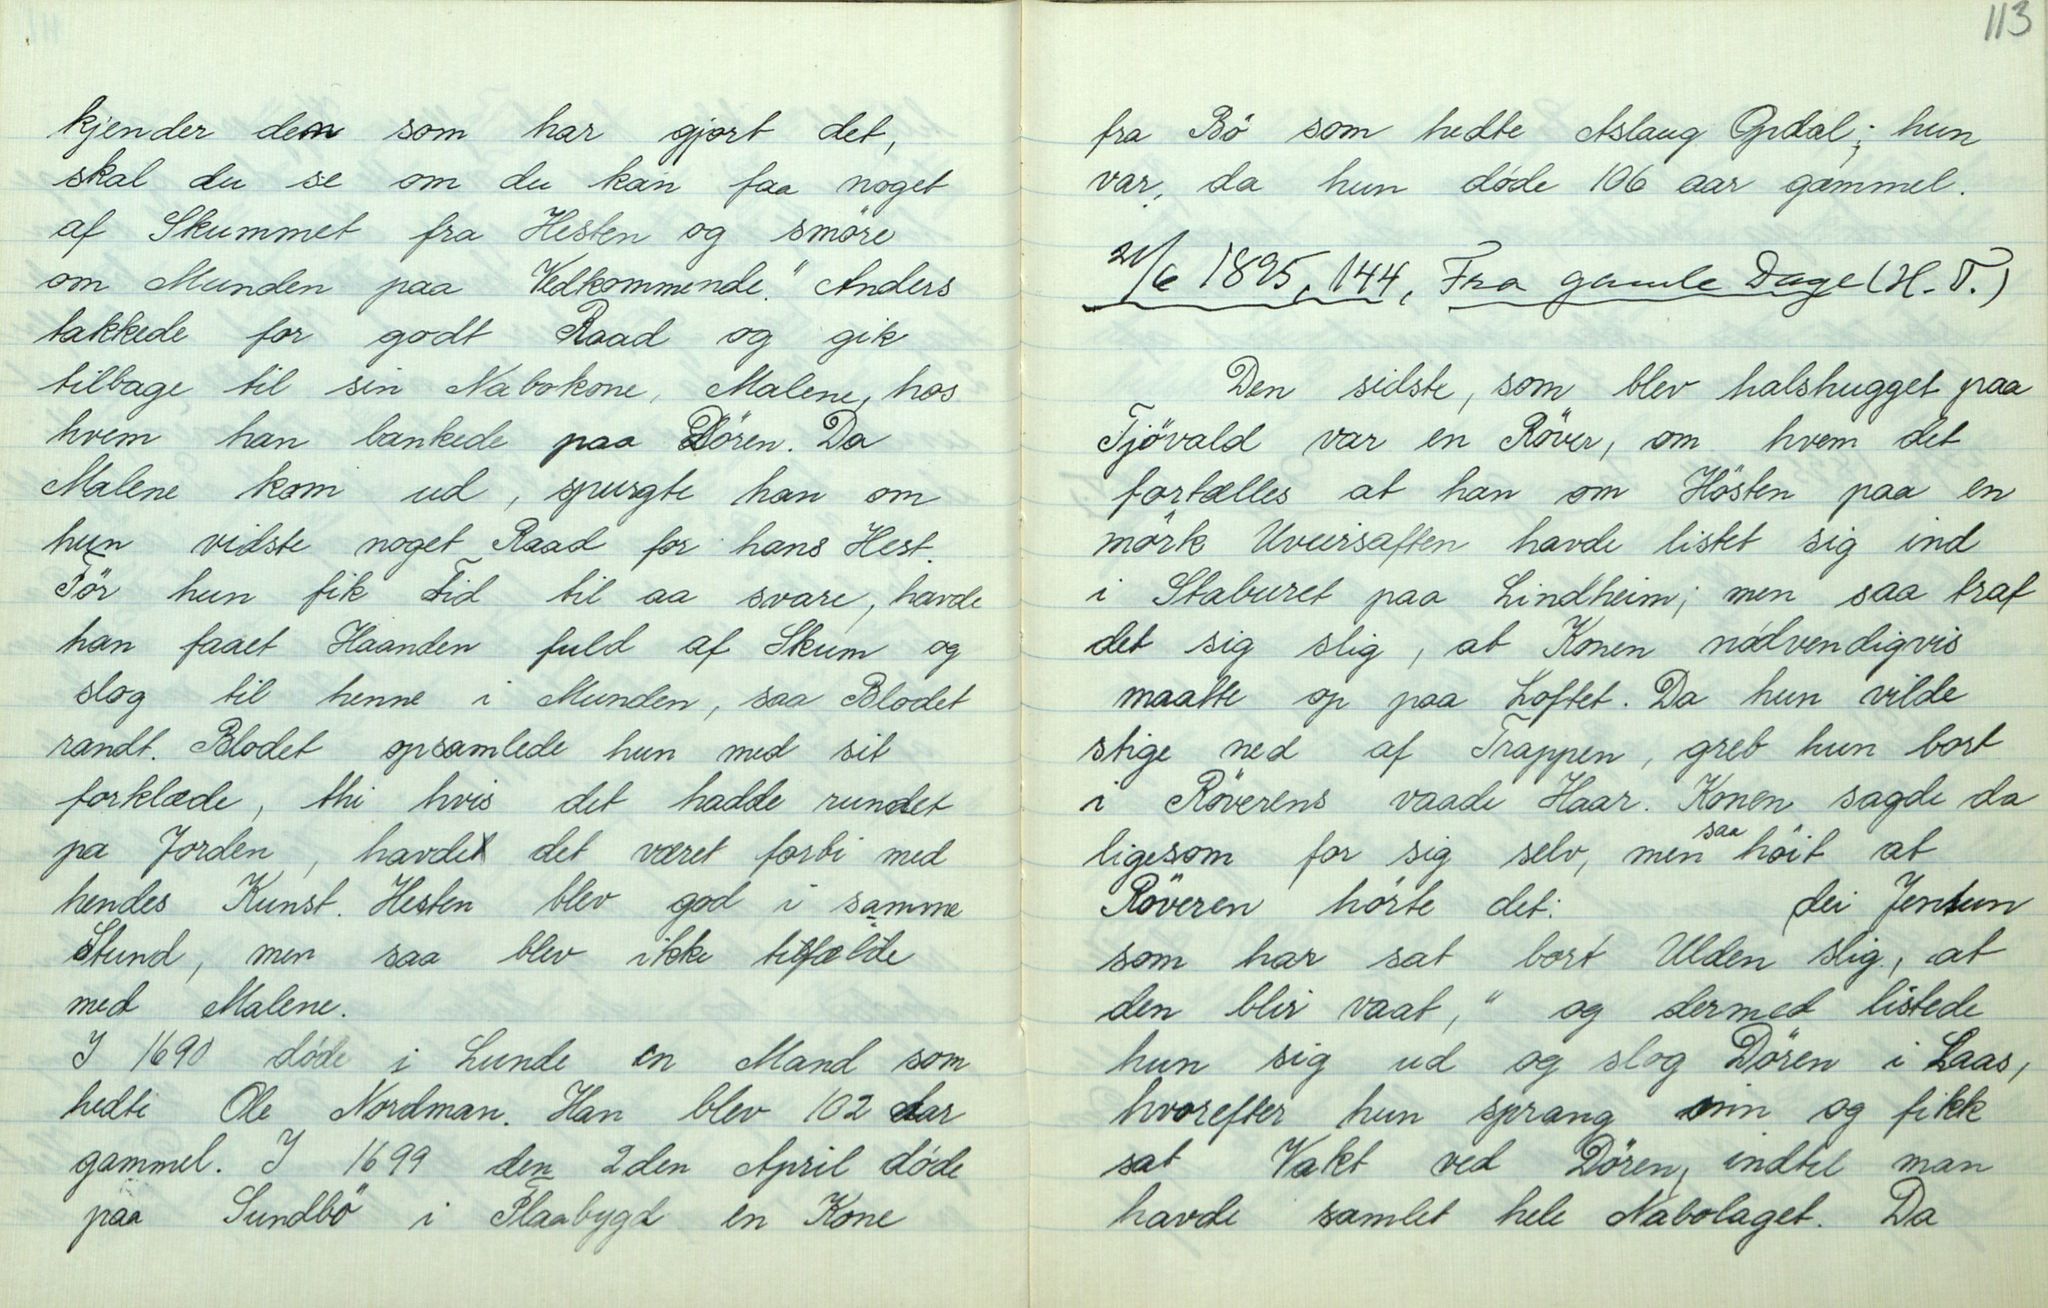 kjender den som har gjort det,
skal du se om du kan faa noget
af Skummet fra Hesten og smöre
om Munden paa Vedkommende." Anders
takkede for godt Raad og gik
tilbage til sin Nabokone, Malene, hos
hvem han bankede paa Dören. Da
Malene kom ud, spurgte han om
hun vidste noget Raad for hans Hest.
Før hun fik Tid til aa svare, havde
han faaet Haanden fuld af Skum og
slog til henne i Munden, saa Blodet
randt. Blodet opsamlede hun med sit
forklæde, thi hvis det hadde rundet
pa Jorden, havde det været forbi med
hendes Kunst. Hesten blev god i samme
Stund, men saa blev ikke tilfælde
med Malene.
I 1690 døde i Lunde en Mand som
hedte Ole Nordman. Han blev 102 aar
gammel. I 1699 den 2den April døde
paa Sundbö i Flaabygd en Kone
113
fra Bö som hedte Aslaug Opdal; hun
var, da hun døde 106 aar gammel.
21/6 1895, 144, Fra gamle Dage (H. T.)
Den sidste, som blev halshugget paa
Tjövald var en Röver, om hvem det
fortælles at han om Hösten paa en
mörk Uveirsaften havde listet sig ind
i Staburet paa Lindheim; men saa traf
det sig slig, at Konen nødvendigvis
maatte op paa Loftet. Da hun vilde
stige ned af Trappen, greb hun bort
i Röverens vaade Haar. Konen sagde da
ligesom for sig selv, men saa höit at
Röveren hörte det: dei Jentun
som har sat bort Ulden slig, at
den blir vaat," og dermed listede
hun sig ud og slog Dören i Laas,
hvorefter hun sprang inn og fikk
sat Vakt ved Dören, indtil man
havde samlet hele Nabolaget. Da